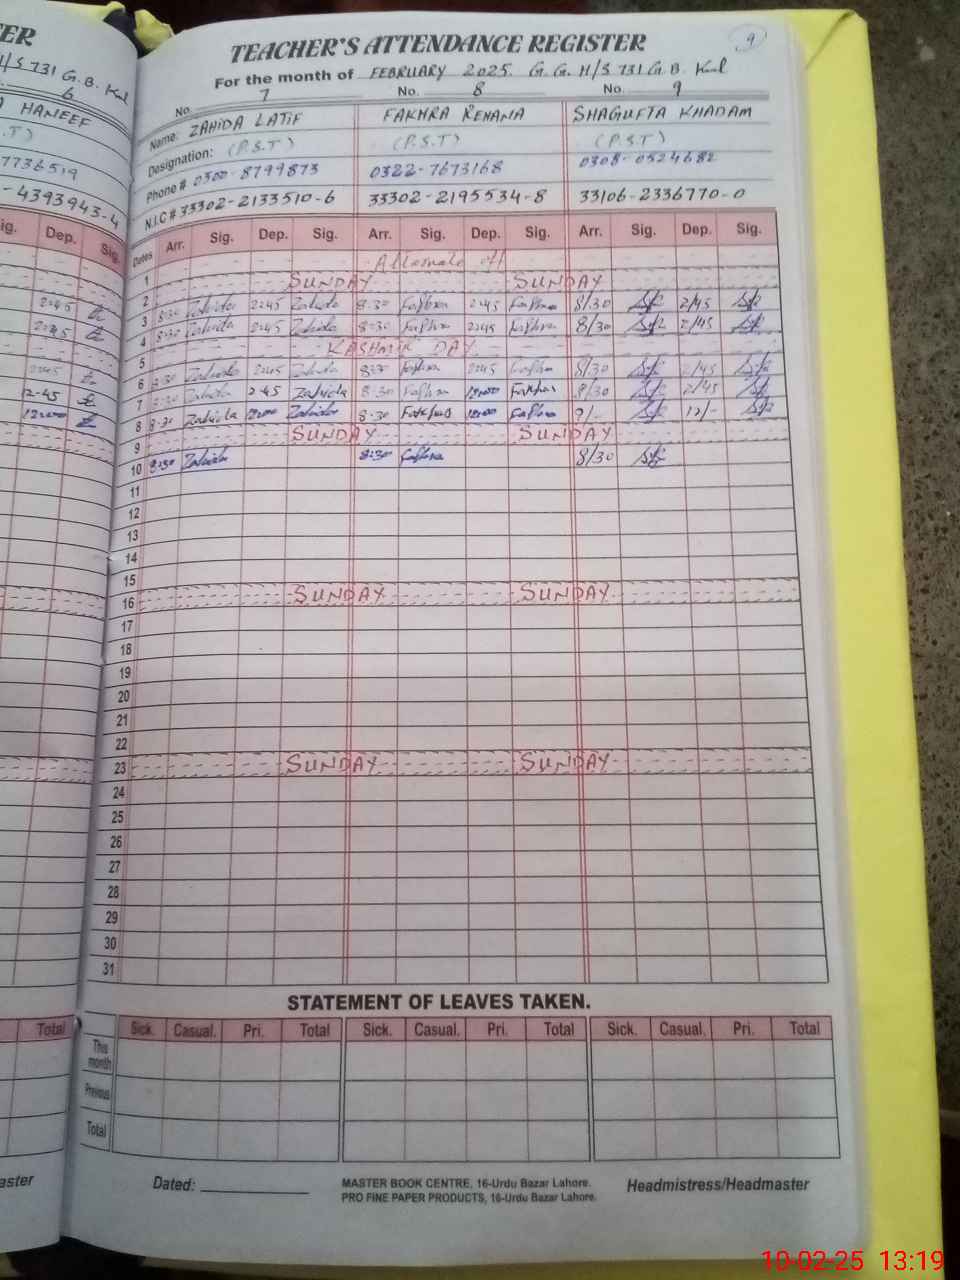 ER
H/S 731 G.B. Kal
6
A HANEEF
.T)
7736519
- 4393943-4
ig. Dep. Sig.
2:45
2:45
2:45
2-45
12:00
Total
aster
TEACHER'S ATTENDANCE REGISTER
9
For the month of FEBRUARY 2025. G.G.H/S 731 G.B. Kal
No. 7 No. 8 No. 9
Name: ZAHIDA LATIF FAKHRA REHANA SHAGUFTA KHADAM
Designation: (P.S.T) (P.S.T) (P.S.T)
Phone # 0300-8799873 0322-7673168 0308-0524682
N.I.C # 33302-2133510-6 33302-2195534-8 33106-2336770-0
Dates Arr. Sig. Dep. Sig. Arr. Sig. Dep. Sig. Arr. Sig. Dep. Sig.
1 Alternate off
2 SUNDAY SUNDAY
3 8:30 Zahida 2:45 Zahida 8:30 Fakhra 2:45 Fakhra 8/30 2/45
4 8:30 Zahida 2:45 Zahida 8:30 Fakhra 2:45 Fakhra 8/30 2/45
5 KASHMIR DAY
6 8:30 Zahida 2:45 Zahida 8:30 Fakhra 2:45 Fakhra 8/30 2/45
7 8:30 Zahida 2:45 Zahida 8:30 Fakhra 12:00 Fakhra 8/30 2/45
8 8:30 Zahida 12:00 Zahida 8:30 Fakhra 12:00 Fakhra 9/- 12/-
9 SUNDAY SUNDAY
10 8:30 Zahida 8:30 Fakhra 8/30
11
12
13
14
15
16 SUNDAY SUNDAY
17
18
19
20
21
22
23 SUNDAY SUNDAY
24
25
26
27
28
29
30
31
STATEMENT OF LEAVES TAKEN.
Sick. Casual. Pri. Total Sick. Casual. Pri. Total Sick. Casual. Pri. Total
This month
Previous
Total
Dated: MASTER BOOK CENTRE, 16-Urdu Bazar Lahore. Headmistress/Headmaster
PRO FINE PAPER PRODUCTS, 16-Urdu Bazar Lahore.
10-02-25 13:19